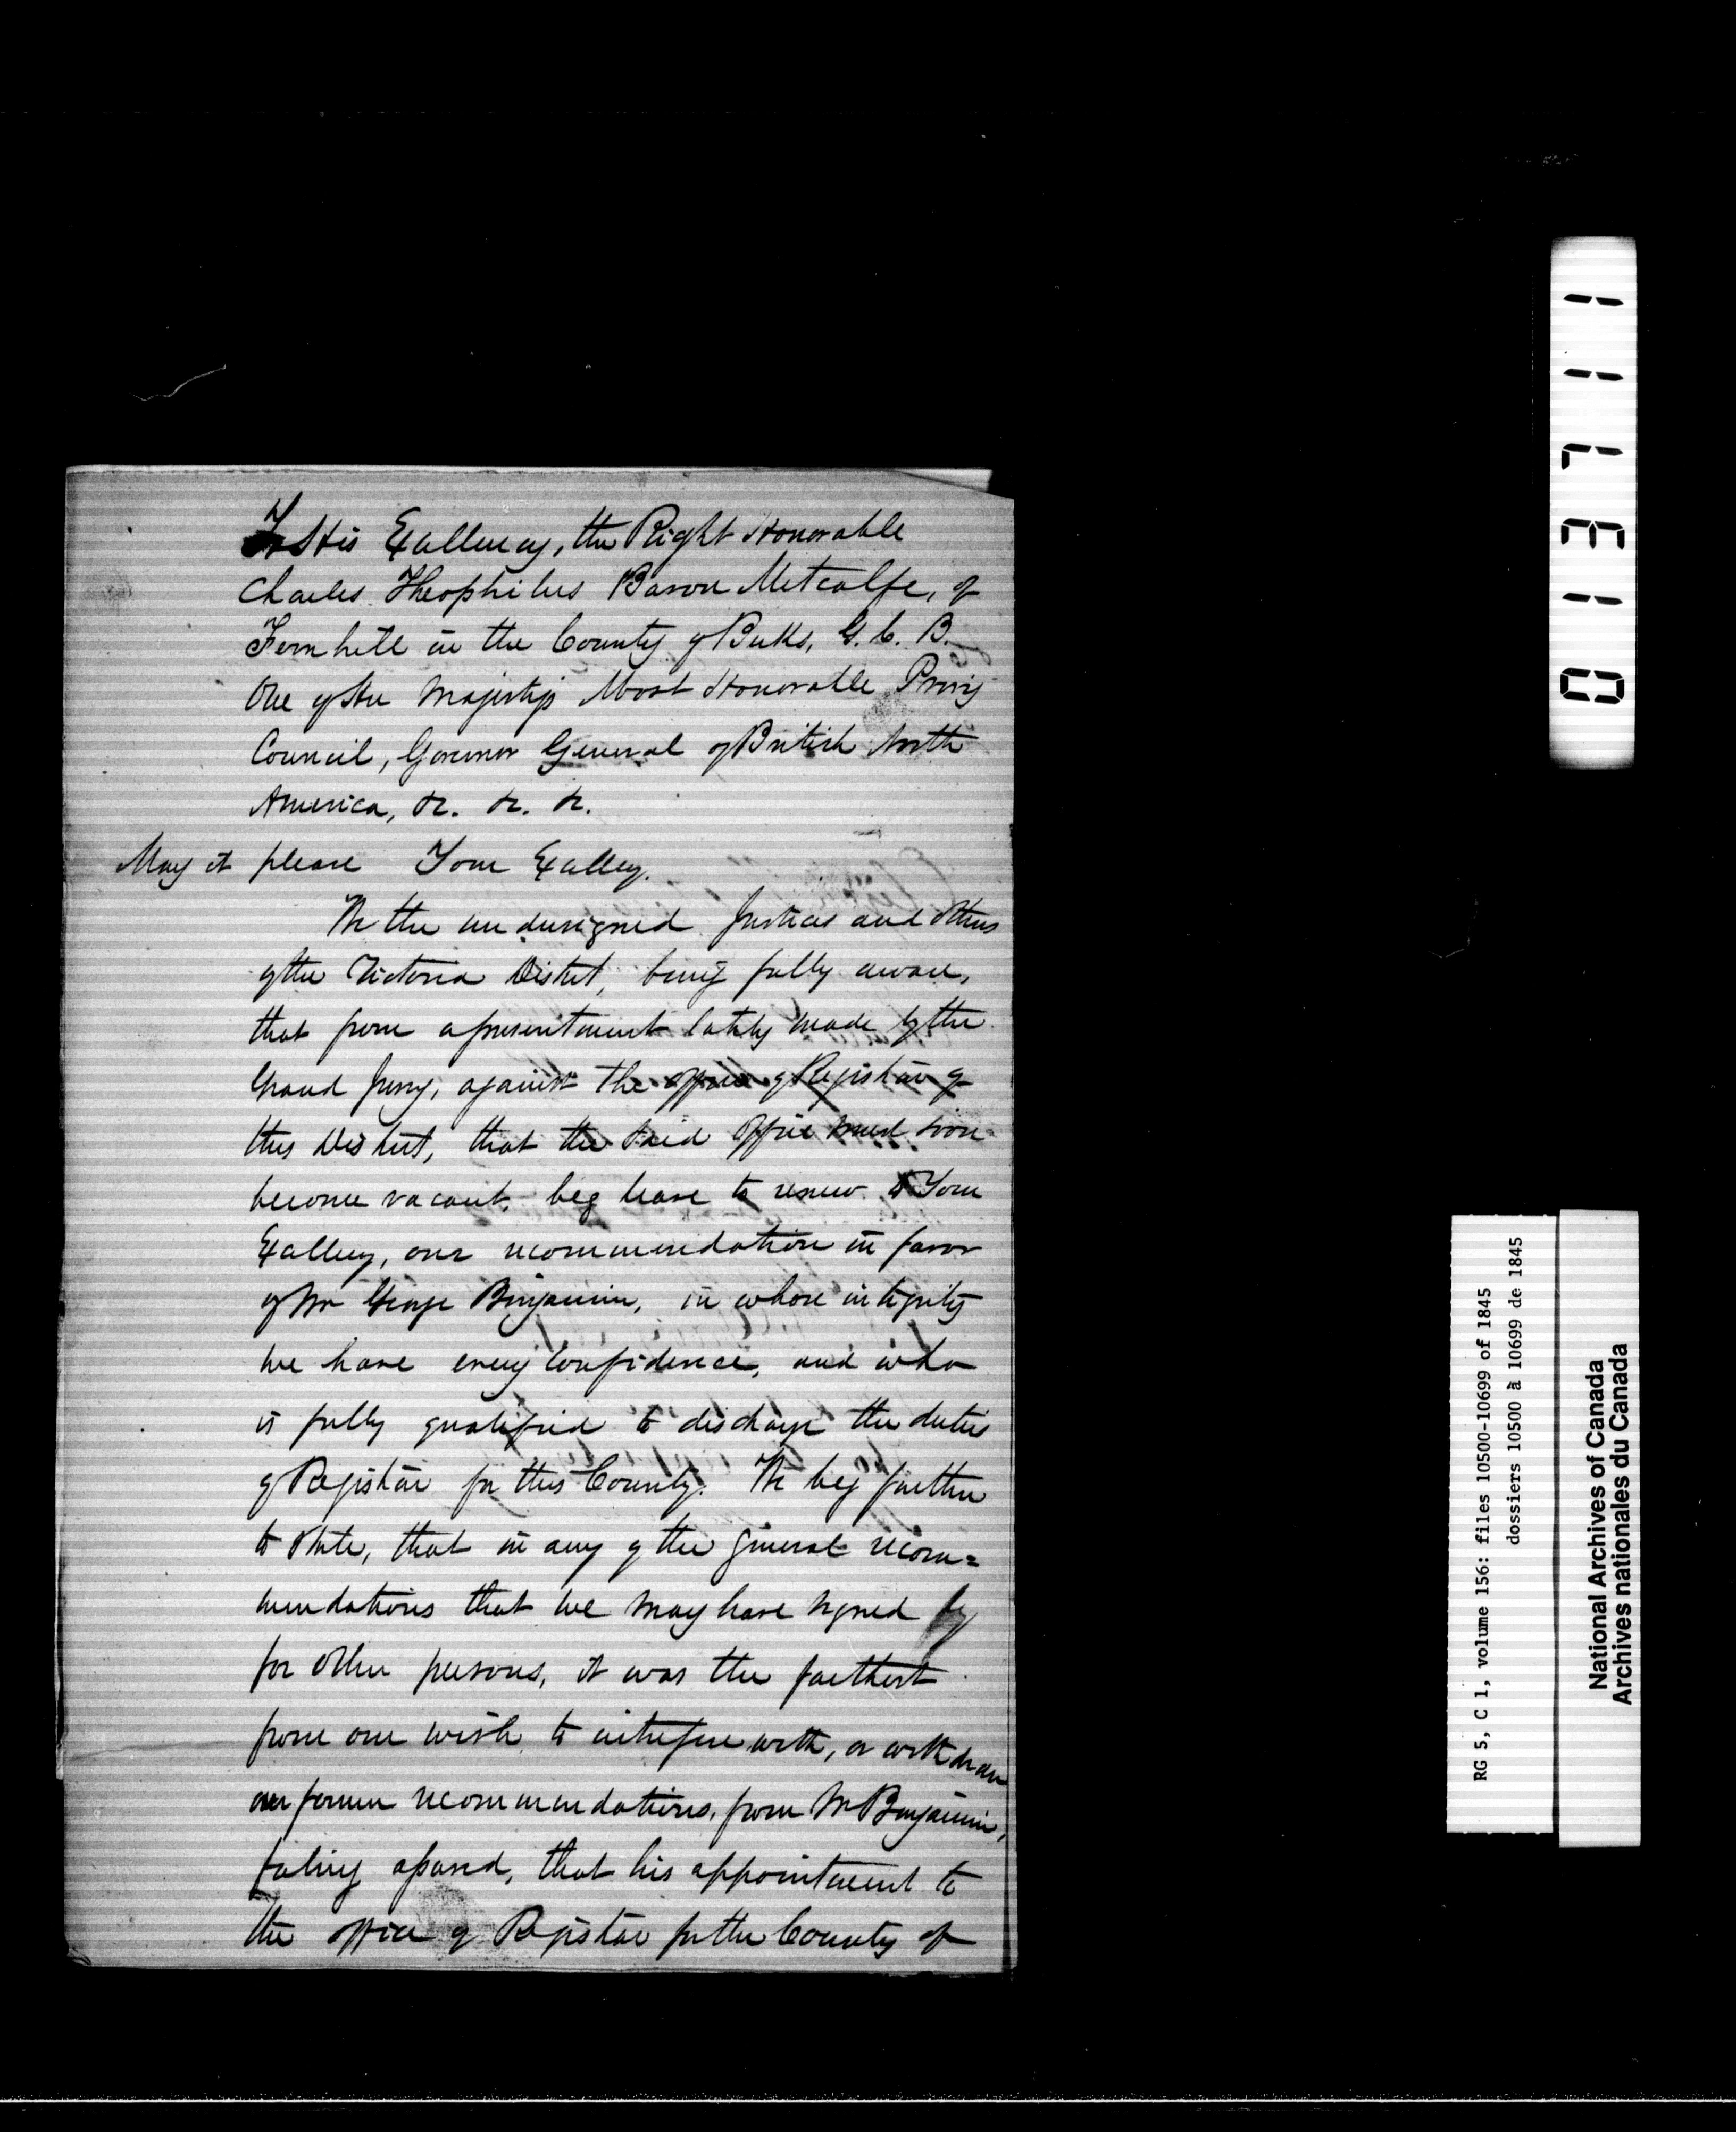 To His Excellency, the Right Honorable
Charles Theophilus Baron Metcalfe, of
Fernhill in the County of Berks, G. C. B.
One of Her Majesty's Most Honorable Privy
Council, Governor General of British North
America, &c. &c. &c.
May it please Your Excellcy.
We the undersigned Justices and others
of the Victoria District, being fully aware,
that from a presentment lately made by the
Grand Jury, against the office of Registrar of
this District, that the said office must soon
become vacant, beg leave to renew to Your
Excellcy, our recommendation in favor
of Mr George Benjamin, in whose integrity
we have every confidence, and who
is fully qualified to discharge the duties
of Registrar for this County. We beg further
to state, that in any of the general recom=
mendations that we may have signed
for other persons, it was the farthest
from our wish to interfere with, or withdraw
our former recommendations, from Mr Benjamin,
feeling assured, that his appointment to
the office of Registrar for the County of
013711
RG 5, C 1, volume 156: files 10500-10699 of 1845
dossiers 10500 à 10699 de 1845
National Archives of Canada
Archives nationales du Canada